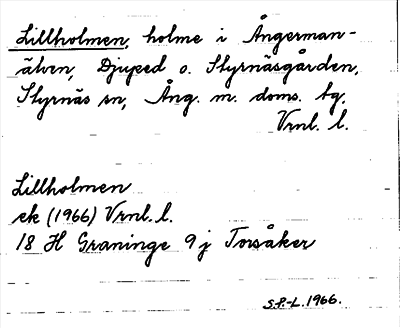 Lillholmen, holme i Ångerman-
älven, Djuped o. Styrnäsgården,
Styrnäs sn, Ång. m. doms. tg.
Vrnl. l.
Lillholmen
ek (1966) Vrnl. l.
18 H Graninge 9 j Torsåker
S.P-L. 1966.